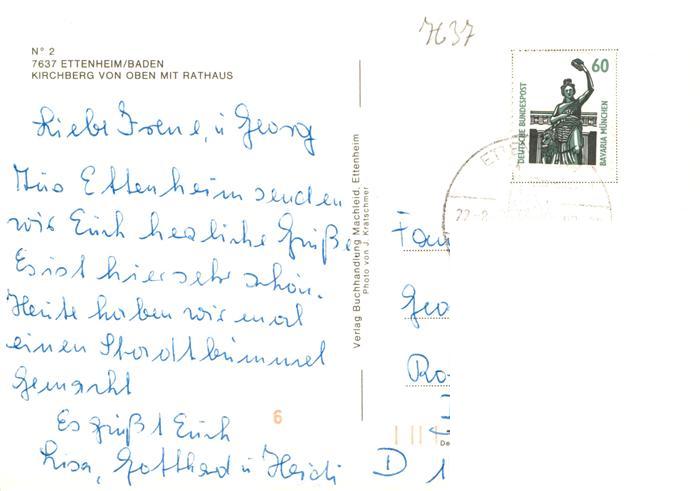 7637
N° 2
7637 ETTENHEIM/BADEN
KIRCHBERG VON OBEN MIT RATHAUS
60
DEUTSCHE BUNDESPOST
BAVARIA MÜNCHEN
Liebe Irene, u Georg
Aus Ettenheim senden
wir Euch herzliche Grüße,
Es ist hier sehr schön.
Heute haben wir mal
einen Stadtbummel
gemacht
Es grüßt Euch
Lisa, Gotthard u Heidi
6
Verlag Buchhandlung Machleid, Ettenheim
Photo von J. Kratschmer
Fam
Geo
Ro
D 1